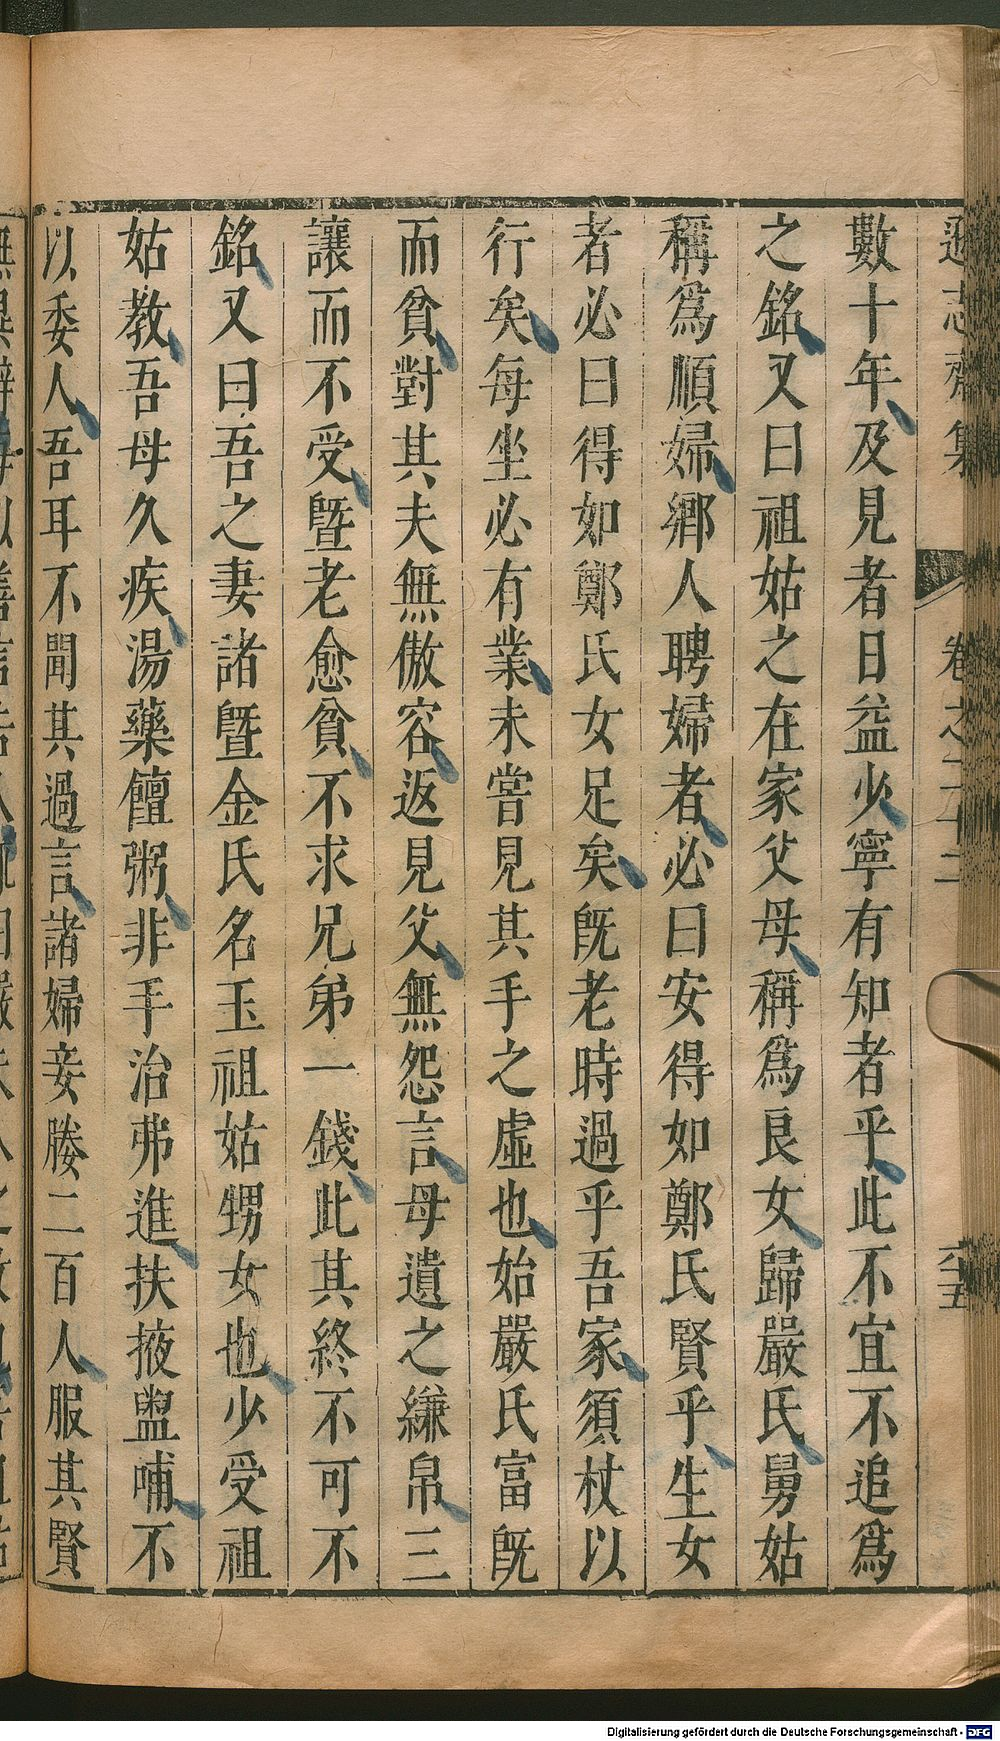 遜志齋集　卷之二十二　六十五
數十年及見者日益少寧有知者乎此不宜不追爲
之銘又曰祖姑之在家父母稱爲良女歸嚴氏舅姑
稱爲順婦鄉人聘婦者必曰安得如鄭氏賢乎生女
者必曰得如鄭氏女足矣旣老時過乎吾家須杖以
行矣每坐必有業未嘗見其手之虛也始嚴氏富旣
而貧對其夫無傲容返見父無怨言母遺之縑帛三
讓而不受曁老愈貧不求兄弟一錢此其終不可不
銘又曰吾之妻諸曁金氏名玉祖姑甥女也少受祖
姑教吾母久疾湯藥饘粥非手治弗進扶掖盥哺不
以委人吾耳不聞其過言諸婦妾媵二百人服其賢
Digitalisierung gefördert durch die Deutsche Forschungsgemeinschaft - DFG